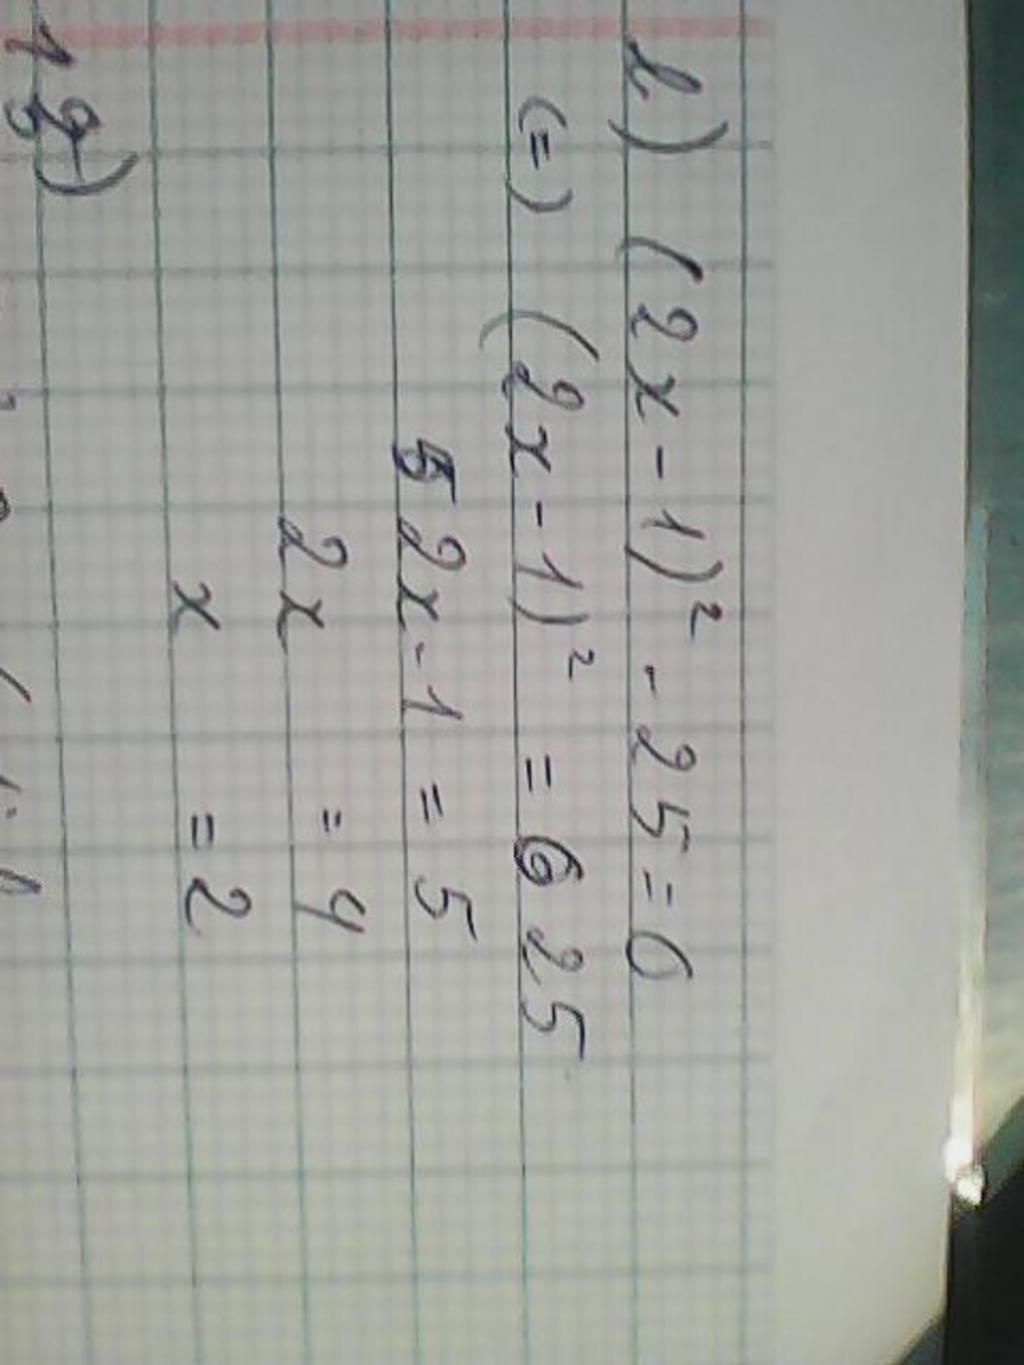 l) (2x-1)² - 25 = 0
(=) (2x-1)² = 25
2x-1 = 5
2x = 4
x = 2